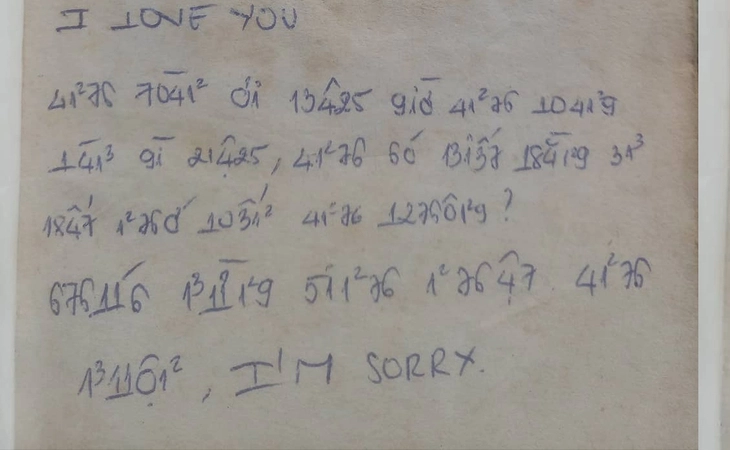 I LOVE YOU
41²76 704̄1² ơi 134̂25 giờ 41²76 104́1²9
14̄1³ 9ī 214̣̂25, 41²76 6ó 13137̂́ 184̄1²9 31³
184̂́7 1²76ớ 1031̂́² 41²76 12760̂1²9?
676116 1³111²9 511²76 1²764̣̂7 41²76
1³110̣̂1², I'M SORRY.